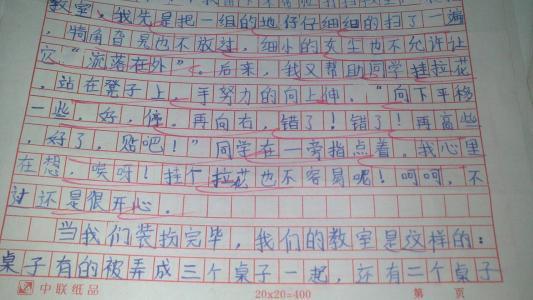 教室,我先是把一组的地仔仔细细的扫了一遍
,犄角旮旯也不放过,细小的灰尘也不允许让
它"流落在外"。后来,我又帮助同学挂拉花
,站在凳子上,手努力的向上伸,"向下平移
一些,好,停,再向右,错了!错了!再高些
,好了,贴吧!"同学在一旁指点着,我心里
在想,唉呀!挂个拉花也不容易呢!呵呵,不
过还是很开心。
当我们装扮完毕,我们的教室是这样的:
桌子有的被弄成三个桌子一起,还有二个桌子
中联纸品 20x20=400 第 页